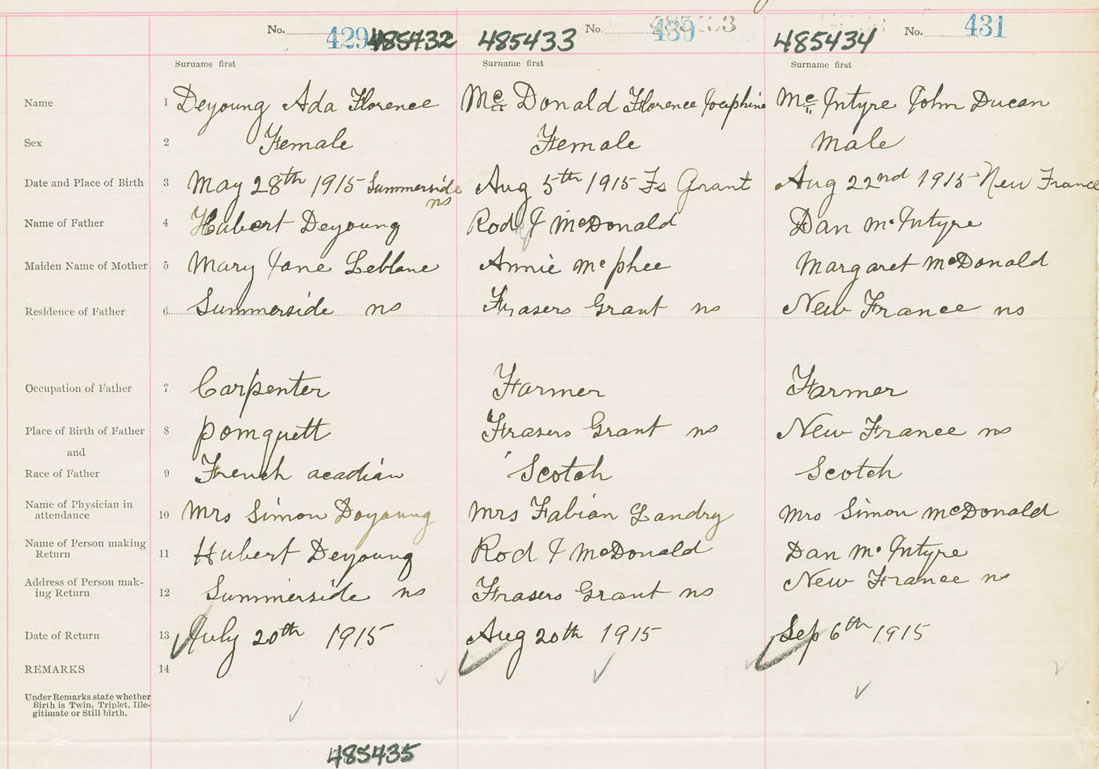 No. 429 485432 485433 No. 430 485434 No. 431
Surname first Surname first Surname first
Name 1 Deyoung Ada Florence Mc Donald Florence Josephine Mc Intyre John Ducan
Sex 2 Female Female Male
Date and Place of Birth 3 May 28th 1915 Summerside ns Aug 5th 1915 Fs Grant Aug 22nd 1915 New France
Name of Father 4 Hubert Deyoung Rod J McDonald Dan McIntyre
Maiden Name of Mother 5 Mary Jane Leblanc Annie Mcphee Margaret McDonald
Residence of Father 6 Summerside ns Frasers Grant ns New France ns
Occupation of Father 7 Carpenter Farmer Farmer
Place of Birth of Father 8 Pomquett Frasers Grant ns New France ns
and
Race of Father 9 French acadian Scotch Scotch
Name of Physician in
attendance 10 Mrs Simon Doyoung Mrs Fabian Landry Mrs Simon McDonald
Name of Person making
Return 11 Hubert Deyoung Rod J McDonald Dan McIntyre
Address of Person mak-
ing Return 12 Summerside ns Frasers Grant ns New France ns
Date of Return 13 July 20th 1915 Aug 20th 1915 Sep 6th 1915
REMARKS 14
Under Remarks state whether
Birth is Twin, Triplet, Ille-
gitimate or Still birth.
485435